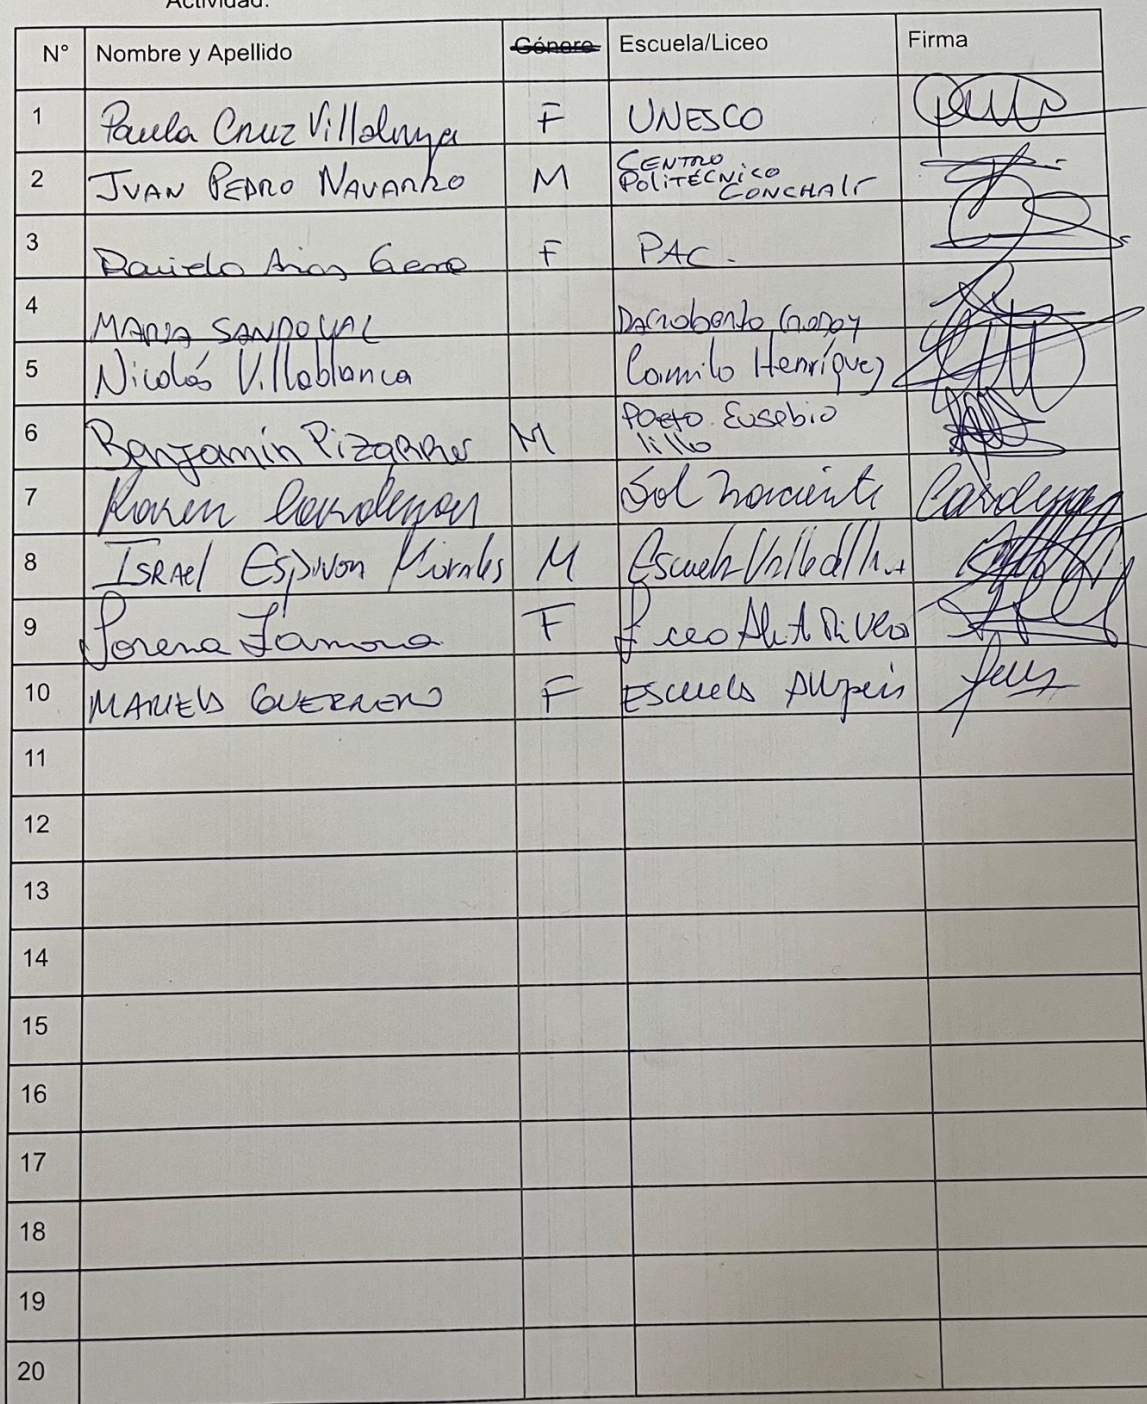 Actividad:
N° Nombre y Apellido Género Escuela/Liceo Firma
1 Paula Cruz Villalonga F UNESCO
2 JUAN PEDRO NAVARRO M CENTRO POLITÉCNICO CONCHALÍ
3 Daniela Arias F PAC.
4 MARIA SANDOVAL Dagoberto Godoy
5 Nicolás Villablanca Camilo Henríquez
6 Benjamín Pizarro M Poeta Eusebio lillo
7 Karen Cardenas Sol naciente Cardenas
8 ISRAEl Espinoza Morales M Escuela Valle del
9 Lorena Zamora F Liceo
10 MARIELA GUERRERO F ESCUELA
11
12
13
14
15
16
17
18
19
20